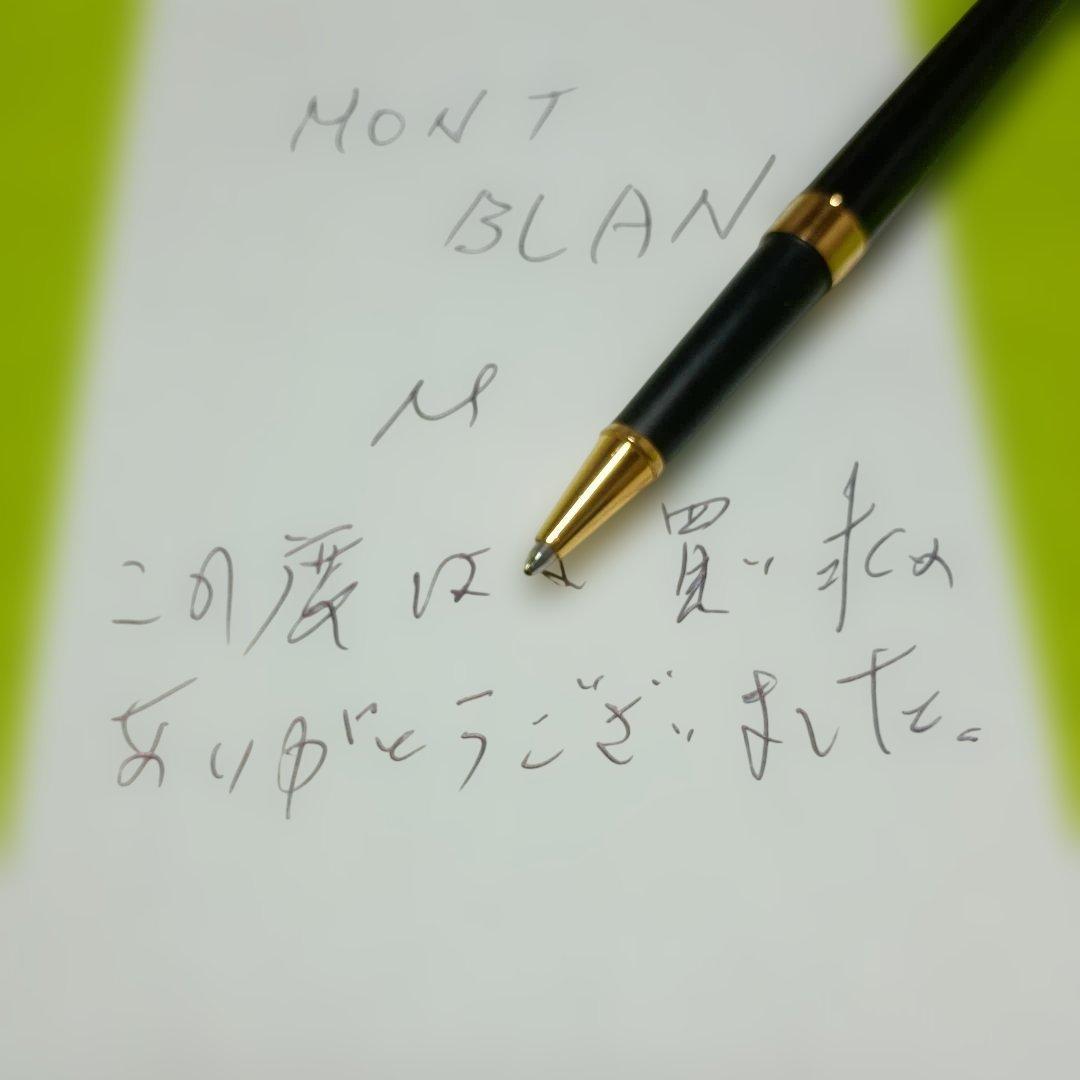 MONT
BLAN
M
この度は 買い求め
ありがとうございました。